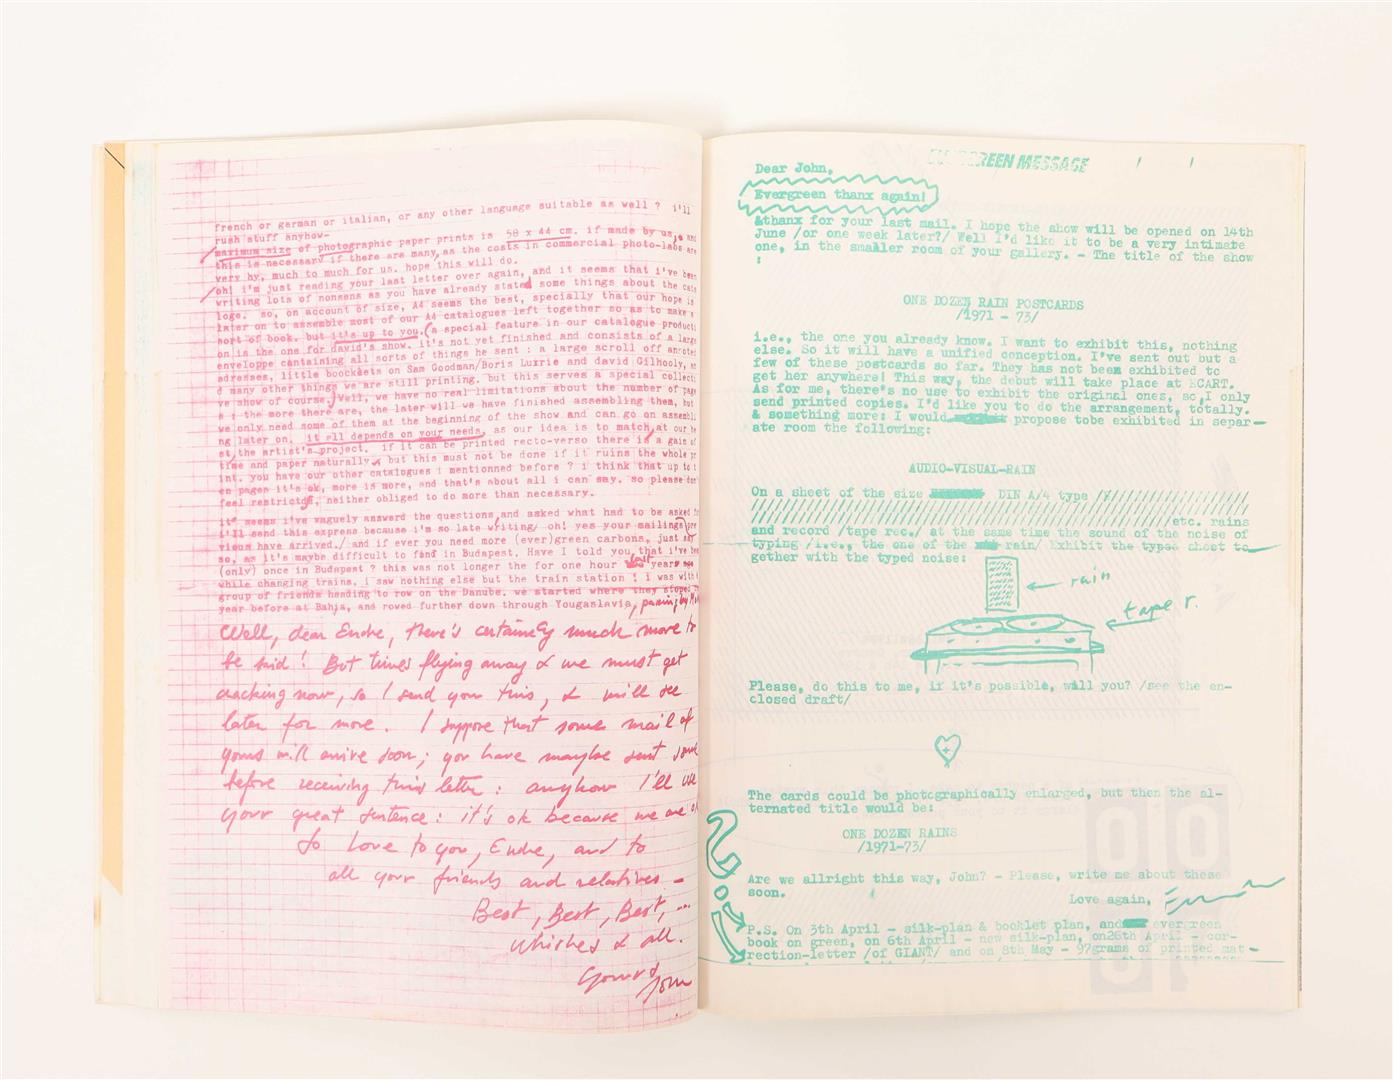 french or german or italian, or any other language suitable as well ? i'll
rush stuff anyhow-
maximum size of photographic paper prints is 58 x 44 cm. if made by us, and
this is necessary if there are many, as the costs in commercial photo-labs are
very hy, much to much for us. hope this will do.
oh! i'm just reading your last letter over again, and it seems that i've been
writing lots of nonsens as you have already stated some things about the cata
loge. so, on account of size, A4 seems the best, specially that our hope is
later on to assemble most of our A4 catalogues left together so as to make a
sort of book. but it's up to you. (a special feature in our catalogue producti
on is the one for david's show. it's not yet finished and consists of a large
enveloppe cantaining all sorts of things he sent : a large scroll off annoted
adresses, little boockéets on Sam Goodman/Boris Luxrie and david Gilhooly, an
d many other things we are still printing. but this serves a special collecti
ve show of course.) Well, we have no real limitations about the number of page
s : the more there are, the later will we have finished assembling them, but
we only need some of them at the beginning of the show and can go on assembli
ng later on. it all depends on your needs, as our idea is to match at our be
st the artist's project. if it can be printed recto-verso there is a gain of
time and paper naturally, but this must not be done if it ruins the whole pr
int. you have our other catalogues i mentionned before ? i think that up to t
en pages it's ok, more is more, and that's about all i can say. so please don'
feel restricted, neither obliged to do more than necessary.
it seems i've vaguely answerd the questions, and asked what had to be asked
i'll send this express because i'm so late writing/ oh! yes your mailings pre
vious have arrived./ and if ever you need more (ever)green carbons, just say
so, as it's maybe difficult to find in Budapest. Have I told you, that i've been
(only) once in Budapest ? this was not longer the for one hour last years
while changing trains. i saw nothing else but the train station ! i was with
group of friends heading to row on the Danube. we started where they stoped
year before at Bahja, and rowed further down through Yougaslavia, passing by
Well, dear Endre, there's certainely much more to
be said ! But times flying away & we must get
cracking now, so I send you this, & will see
later for more. I suppose that some mail of
yours will arrive soon; you have maybe sent some
before receiving this letter : anyhow I'll use
your great sentence : it's ok because we are ok
So love to you, Endre, and to
all your friends and relatives -
Best, Best, Best, ...
Whishes & all.
Yours John
EVERGREEN MESSAGE
Dear John,
Evergreen thanx again!
&thanx for your last mail. I hope the show will be opened on 14th
June /or one week later?/ Well I'd like it to be a very intimate
one, in the smaller room of your gallery. - The title of the show
:
ONE DOZEN RAIN POSTCARDS
/1971 - 73/
i.e., the one you already know. I want to exhibit this, nothing
else. So it will have a unified conception. I've sent out but a
few of these postcards so far. They has not been exhibited to
get her anywhere! This way, the debut will take place at ECART.
As for me, there's no use to exhibit the original ones, so,I only
send printed copies. I'd like you to do the arrangement, totally.
& something more: I would propose tobe exhibited in separ-
ate room the following:
AUDIO-VISUAL-RAIN
On a sheet of the size DIN A/4 type /////////////////
////////////////////////////////////////etc. rains
and record /tape rec./ at the same time the sound of the noise of
typing /i.e., the one of the rain/ Exhibit the typed sheet to-
gether with the typed noise:
rain
tape r.
Please, do this to me, if it's possible, will you? /see the en-
closed draft/
The cards could be photographically enlarged, but then the al-
ternated title would be:
ONE DOZEN RAINS
/1971-73/
Are we allright this way, John? - Please, write me about these
soon.
Love again,
P.S. On 3th April - silk-plan & booklet plan, and evergreen
book on green, on 6th April - new silk-plan, on26th April - cor-
rection-letter /of GIANT/ and on 8th May - 97grams of printed mat-